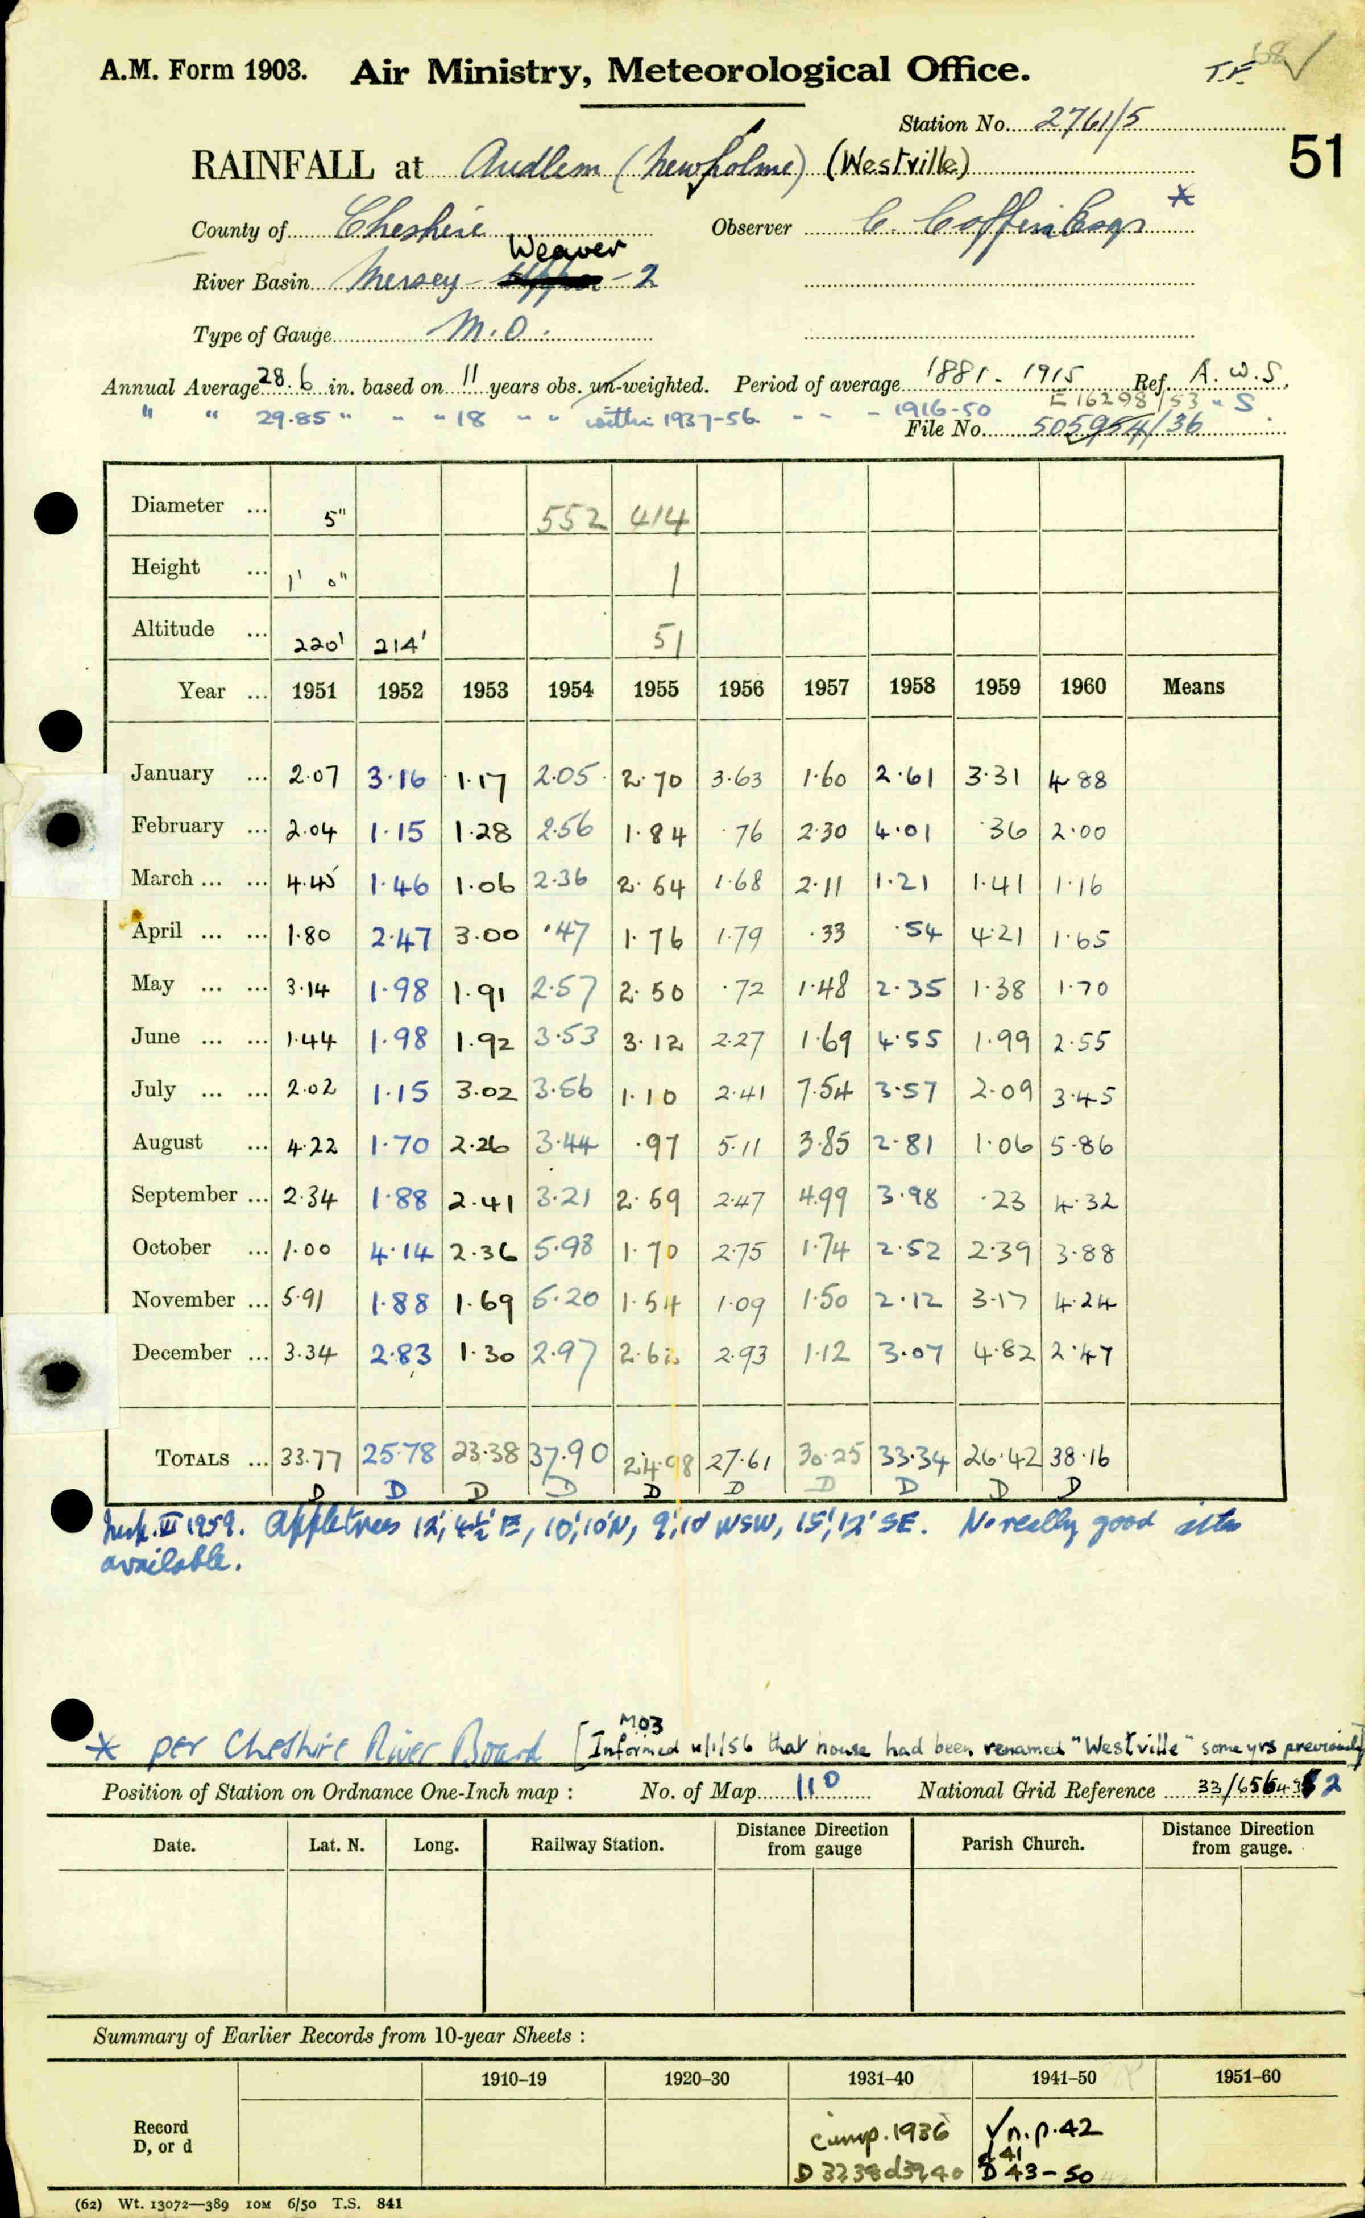 A.M. Form 1903. Air Ministry, Meteorological Office. T.F.
Station No. 2761/5
51
RAINFALL at Audlem (Newholme) (Westville)
County of Cheshire Observer C. Coffin Esqr *
Weaver
River Basin Mersey - 2
Type of Gauge M.O.
Annual Average 28.6 in. based on 11 years obs. un-weighted. Period of average 1881 - 1915 Ref. A.W.S.
" " 29.85 " " " 18 " " within 1937-56 - - - 1916-50 E16298/53 " S
File No. 505954/36
Diameter ... 5" 552 414
Height ... 1' 0" 1
Altitude ... 220' 214' 51
Year ... 1951 1952 1953 1954 1955 1956 1957 1958 1959 1960 Means
January ... 2.07 3.16 1.17 2.05 2.70 3.63 1.60 2.61 3.31 4.88
February ... 2.04 1.15 1.28 2.56 1.84 .76 2.30 4.01 .36 2.00
March ... ... 4.45 1.46 1.06 2.36 2.54 1.68 2.11 1.21 1.41 1.16
April ... ... 1.80 2.47 3.00 .47 1.76 1.79 .33 .54 4.21 1.65
May ... ... 3.14 1.98 1.91 2.57 2.50 .72 1.48 2.35 1.38 1.70
June ... ... 1.44 1.98 1.92 3.53 3.12 2.27 1.69 4.55 1.99 2.55
July ... ... 2.02 1.15 3.02 3.56 1.10 2.41 7.54 3.57 2.09 3.45
August ... 4.22 1.70 2.26 3.44 .97 5.11 3.85 2.81 1.06 5.86
September ... 2.34 1.88 2.41 3.21 2.59 2.47 4.99 3.98 .23 4.32
October ... 1.00 4.14 2.36 5.98 1.70 2.75 1.74 2.52 2.39 3.88
November ... 5.91 1.88 1.69 5.20 1.54 1.09 1.50 2.12 3.17 4.24
December ... 3.34 2.83 1.30 2.97 2.62 2.93 1.12 3.07 4.82 2.47
TOTALS ... 33.77 25.78 23.38 37.90 24.98 27.61 30.25 33.34 26.42 38.16
D D D D D D D D D D
Insp. III 1959. Appletrees 12', 4½' E, 10', 10' N, 9', 10' WSW, 15', 12' SE. No really good site
available.
MO3
* per Cheshire River Board [Informed 4/1/56 that house had been renamed "Westville" some yrs previously]
Position of Station on Ordnance One-Inch map : No. of Map 110 National Grid Reference 33/656
Date. Lat. N. Long. Railway Station. Distance Direction from gauge Parish Church. Distance Direction from gauge.
Summary of Earlier Records from 10-year Sheets :
1910–19 1920–30 1931–40 1941–50 1951–60
Record
D, or d
comp. 1936 √ n.p. 42
d 41
D 37,38 d 39,40 D 43 - 50
(62) Wt. 13072—389 10M 6/50 T.S. 841